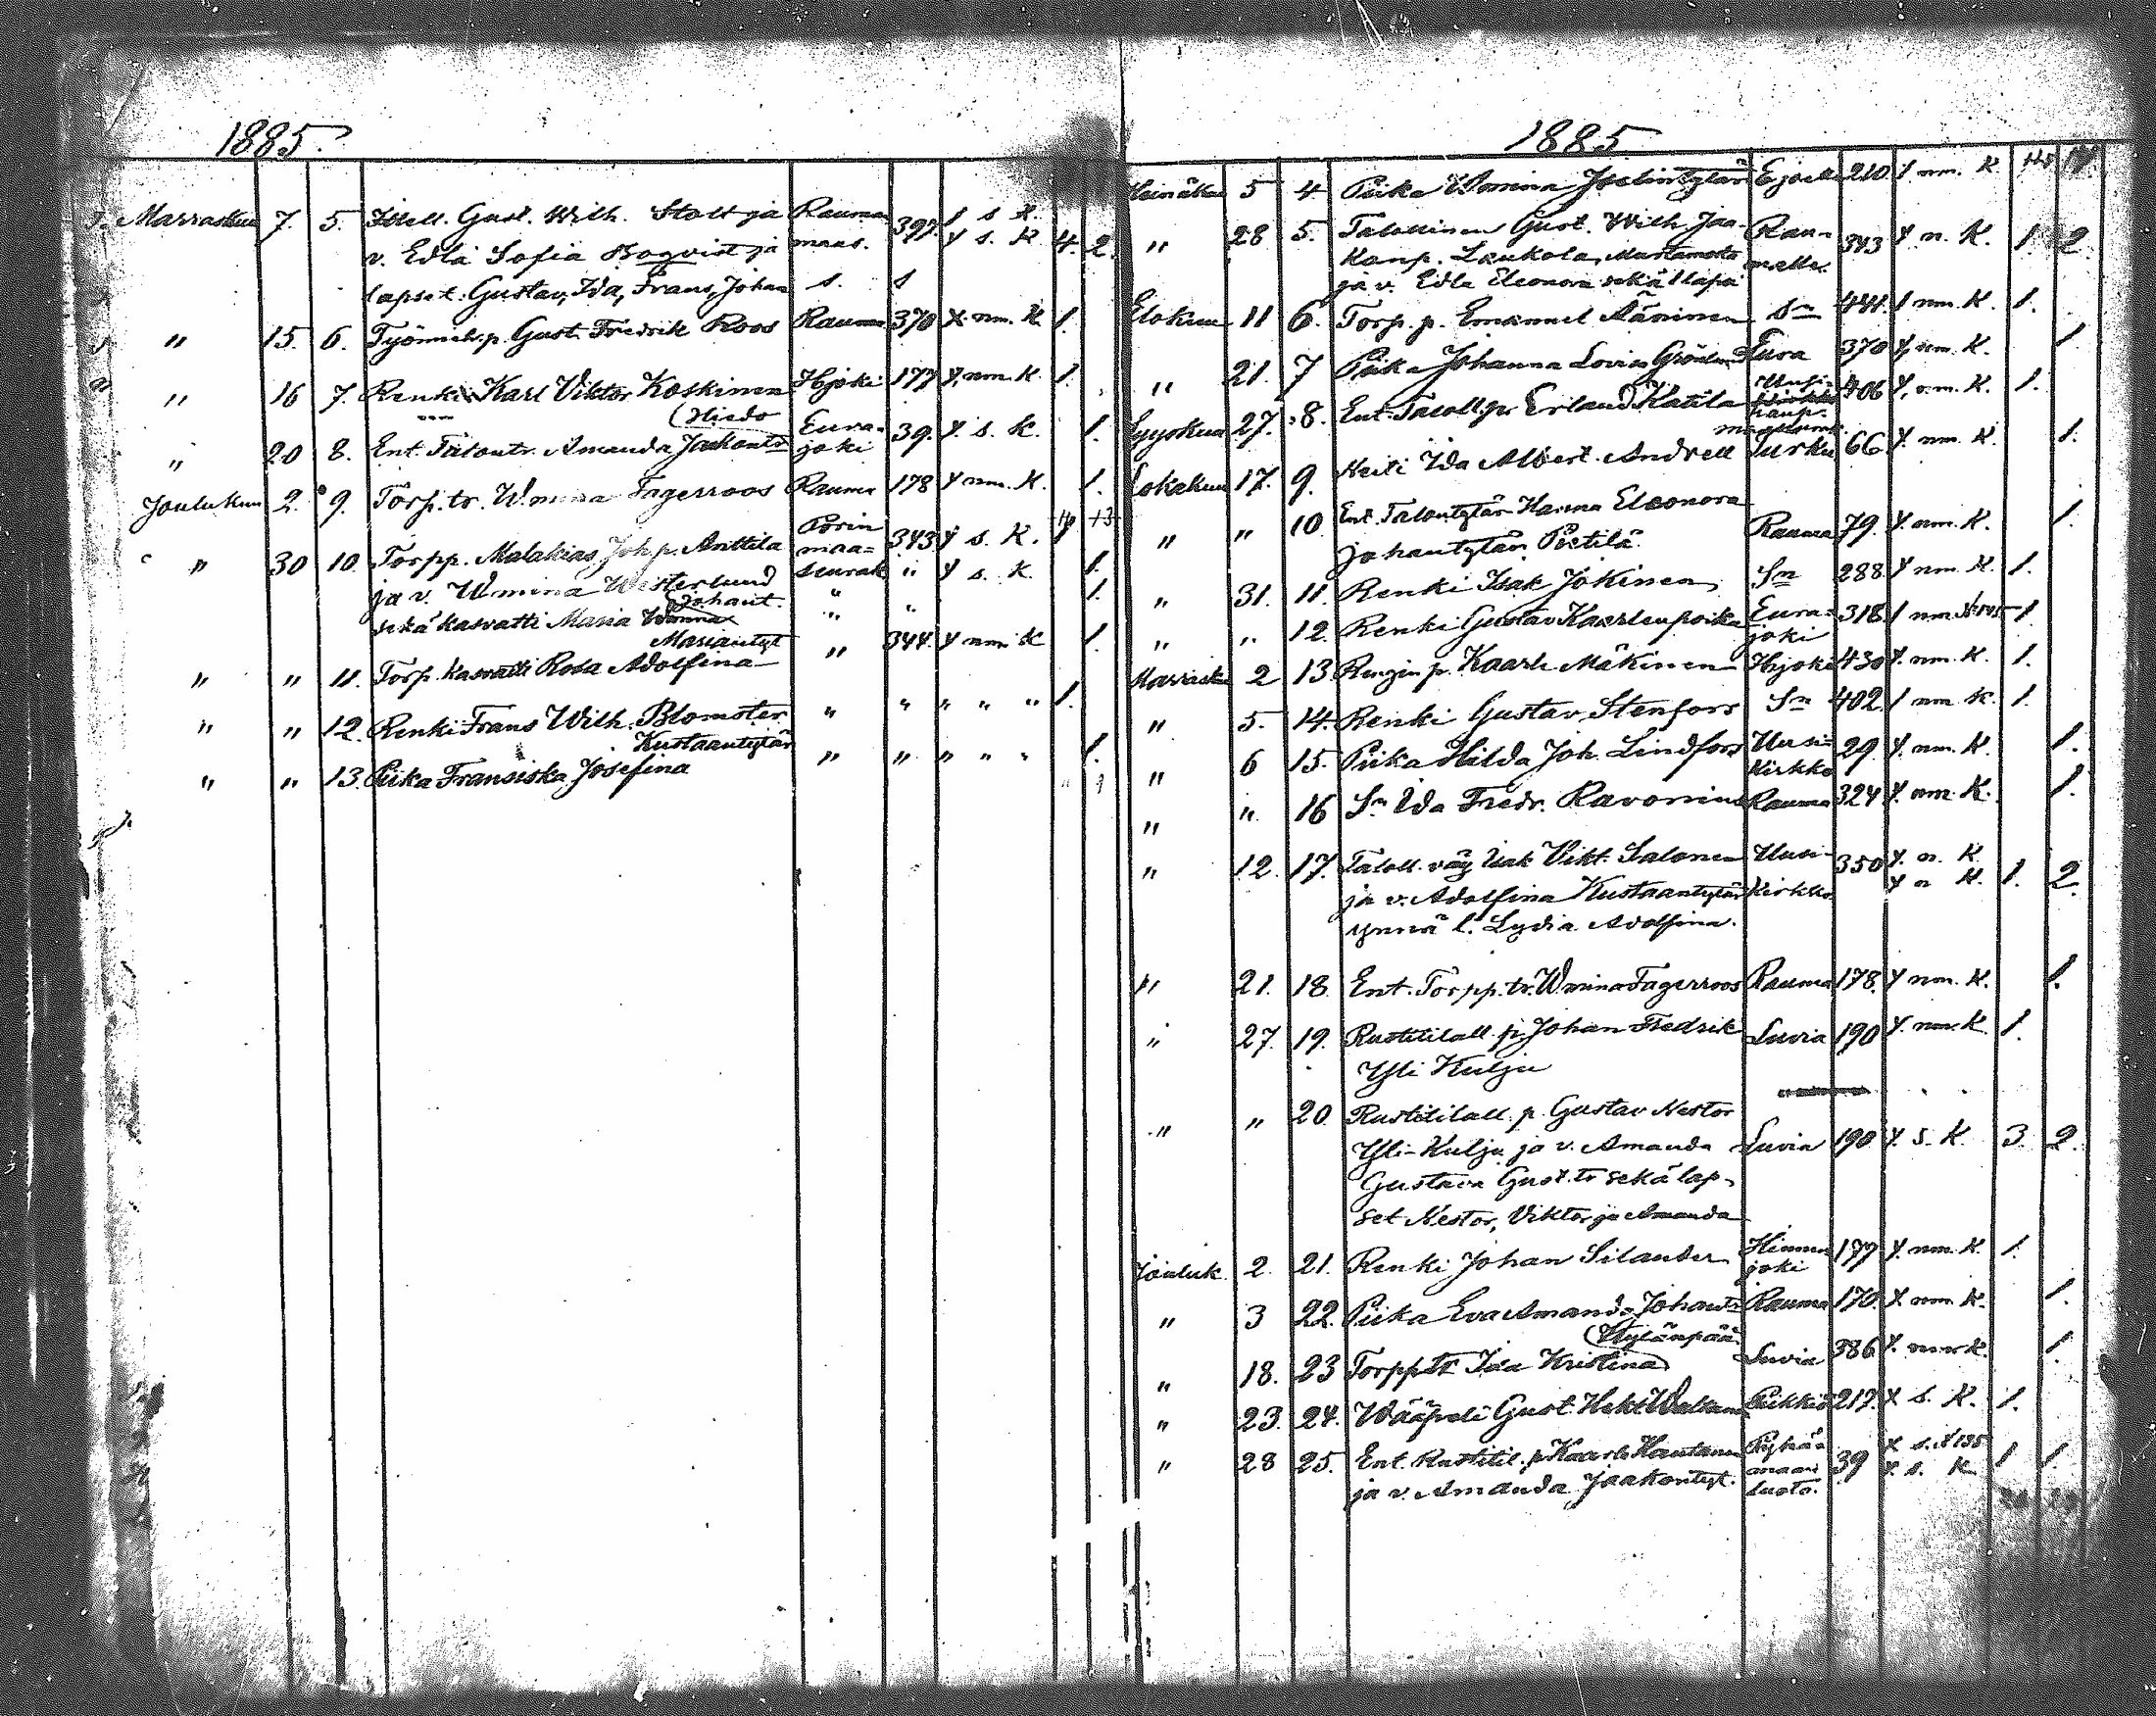 1885.
Marraskuu 7. 5. Itsell. Gust. Wilh. Stolt ja Rauma 397. 1 s K.
v. Edla Sofia Boqvist ja maas. Y s. K 4. 2.
lapset. Gustav, Ida, Frans, Johan s. s
" 15. 6. Työmieh. p. Gust. Fredrik Roos Rauma 370 Y nm. K. 1.
" 16 7. Renki Karl Viktor Koskinen Hjoki 177 Y, nm. K. 1.
(Hiedo Eura-
" 20 8. Ent. Talontr. Amanda Jaakontr joki 39. Y. s. K. 1.
Joulukuu 2. 9. Torp. tr. Wmina Fagerroos Rauma 178 Y nm. K. 1.
" 30 10. Torpp. Malakias Joh. p. Anttila Porin maa= 343 Y s. K. 1
ja v. Wmina Westerlund seurak " Y s. K. 1.
Johant. "
sekä kasvatti Maria " " 1.
Mariantyt
" " 11. Torp. kasvatti Rosa Adolfina " 344. Y nm K 1.
" " 12. Renki Frans Wilh. Blomster " " " " " 1.
Kustaantytär
" " 13. Piika Fransiska Josefina " " " " " 1.
1885
Heinäkuu 5 4 Piika Wmina Joelintytär Ejoki 210 1 nm. K
" 28 5. Talollinen Gust. Wilh. Jaa- Rau- 343 Y n. K. 1. 2
konp. Laukola, Mustamaata malle.
ja v. Edla Eleonora sekä 1 lapsi
Elokuu 11 6. Torp. p. Emanuel Ääninen Sn 441. 1 nm. K. 1.
" 21. 7 Piika Johanna Lovisa Grönlund Eura 370 Y, nm. K. 1
Syyskuu 27. 8. Ent. Taloll. p. Erland Katila kaup. 406 Y, nm. K. 1.
Lokakuu 17. 9. Neiti Ida Albert. Andrell Turku 66 Y. nm. K. 1.
" " 10 Ent. Talontytär Hanna Eleonora
Johantytär Pietilä Rauma 79. Y. nm. K. 1.
" 31. 11. Renki Isak Jokinen Sn 288. Y nm. K. 1.
" " 12. Renki Gustav Kaarlenpoika Eura= 318. 1 nm. 1.
joki
Marrask 2 13. Rengin p. Kaarle Mäkinen Hjoki 430 Y. nm. K. 1.
" 5. 14. Renki Gustav Stenfors Sn 402. 1 nm K. 1.
" 6 15. Piika Hilda Joh. Lindfors Uusi= 29. Y. nm. K. 1.
Kirkko
" " 16 Sn Ida Fredr. Ravonius Rauma 324 Y. nm. K. 1.
" 12. 17. Taloll. väy Isak Vikt. Salonen Uusi- 350 Y. n. K.
ja v. Adolfina Kustaantytär Kirkko Y n K. 1. 2.
ynnä l. Lydia Adolfina.
" 21. 18. Ent. Torpp. tr. Wmina Fagerroos Rauma 178. Y nm. K. 1.
" 27. 19. Rustitilall. p. Johan Fredrik Luvia 190 Y. nm. K. 1.
Yli Kulju
" " 20. Rustitilall. p. Gustav Nestor
Yli-Kulju ja v. Amanda Luvia 190 Y. s. K. 3. 2.
Gustava Gust. tr sekä lap-
set Nestor, Viktor ja Amanda
Jouluk. 2. 21. Renki Johan Silander Hinner 177 Y. nm. K. 1.
joki
" 3 22. Piika Eva Amanda Johantr Rauma 170. Y nm. K. 1.
(Kylänpää
" 18. 23 Torpp tr Ida Kristina Luvia 386 Y. nm K. 1.
" 23. 24. Wääpeli Gust. Hekt Piikkiö 217. Y s. K. 1.
" 28 25. Ent. Rustitil. p. Kaarle Hautanen Pyhän 39 Y s. K 135
ja v. Amanda Jaakontyt. maan Y. s. K 1 1.
luoto.